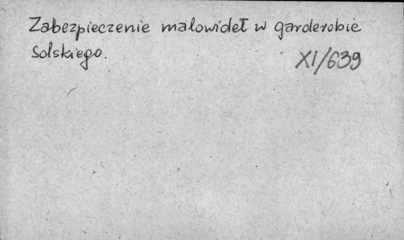 Zabezpieczenie malowideł w garderobie
Solskiego.
XI/639